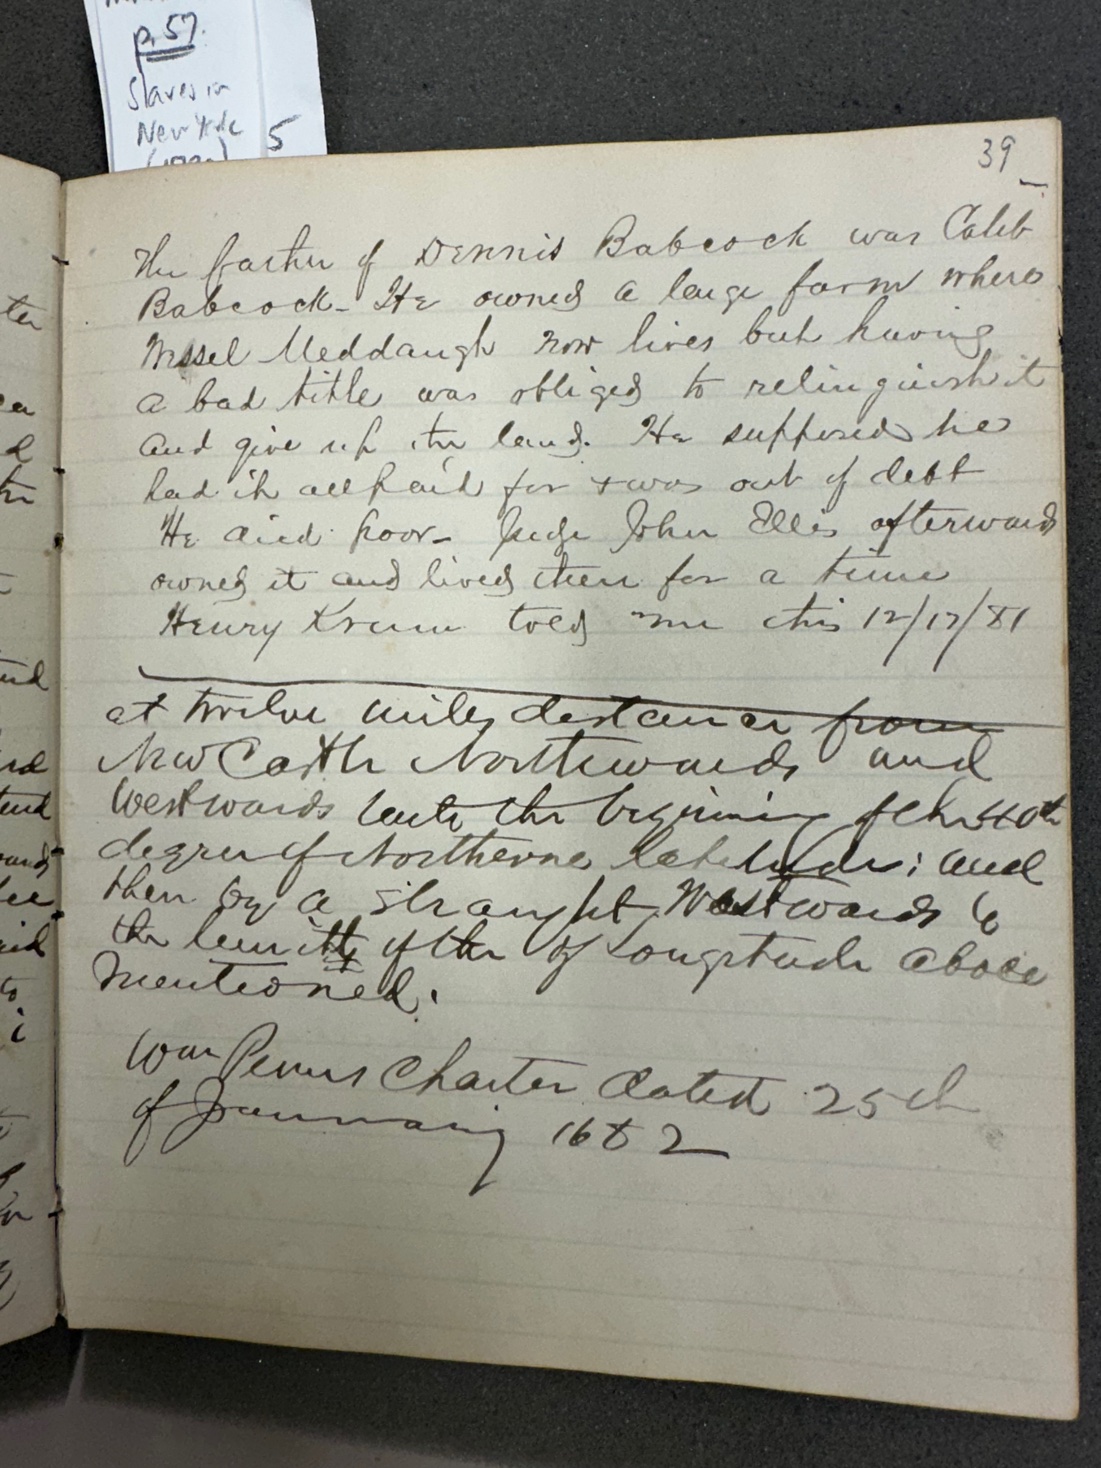 p. 57.
Slaves in
New York
5
39
The father of Dennis Babcock was Caleb
Babcock. He owned a large farm where
Wessel Meddaugh now lives but having
a bad title was obliged to relinquish it
and give up the land. He supposed he
had it all paid for & was out of debt
He died poor. Judge John Ellis afterwards
owned it and lived there for a time
Henry Krum told me this 12/17/81
at twelve miles distance from
New Castle Northwards and
Westwards unto the beginning of the 40th
degree of Northerne latitude; and
then by a straught Westwards to
the limitts of the of Longitude above
mentioned.
Wm Penns Charter dated 25th
of January 1682
ter
d